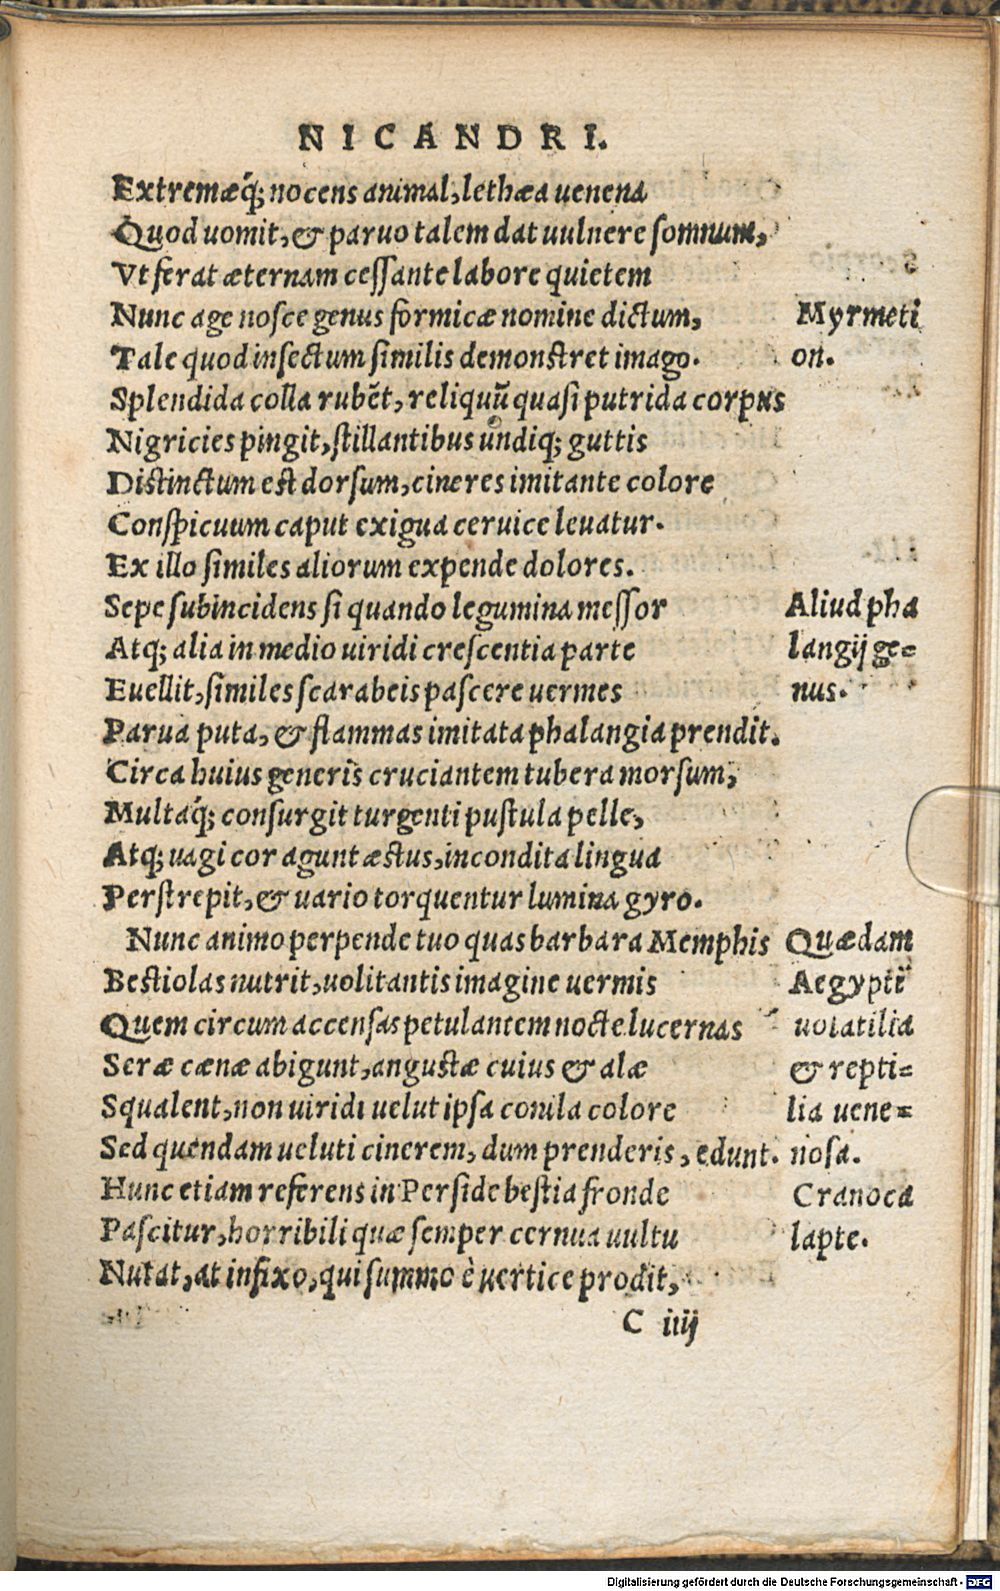 NICANDRI.
Extremæq́; nocens animal, lethæa uenena
Quod uomit, & paruo talem dat uulnere somnum,
Vt ferat æternam cessante labore quietem
Nunc age nosce genus formicæ nomine dictum,
Tale quod insectum similis demonstret imago.
Splendida colla rubēt, reliquū quasi putrida corpus
Nigricies pingit, stillantibus undiq; guttis
Distinctum est dorsum, cineres imitante colore
Conspicuum caput exigua ceruice leuatur.
Ex illo similes aliorum expende dolores.
Sepe subincidens si quando legumina messor
Atq; alia in medio uiridi crescentia parte
Euellit, similes scarabeis pascere uermes
Parua puta, & flammas imitata phalangia prendit.
Circa huius generis cruciantem tubera morsum,
Multaq́; consurgit turgenti pustula pelle,
Atq; uagi cor agunt æstus, incondita lingua
Perstrepit, & uario torquentur lumina gyro.
Nunc animo perpende tuo quas barbara Memphis
Bestiolas nutrit, uolitantis imagine uermis
Quem circum accensas petulantem nocte lucernas
Seræ cænæ abigunt, angustæ cuius & alæ
Squalent, non uiridi uelut ipsa conila colore
Sed quendam ueluti cinerem, dum prenderis, edunt.
Hunc etiam referens in Perside bestia fronde
Pascitur, horribili quæ semper cernua uultu
Nutat, at infixo, qui summo è uertice prodit,
C iiij
Myrmeti
on.
Aliud pha
langij ge=
nus.
Quædam
Aegyptii
uolatilia
& repti=
lia uene=
nosa.
Cranoca
lapte.
Digitalisierung gefördert durch die Deutsche Forschungsgemeinschaft - DFG